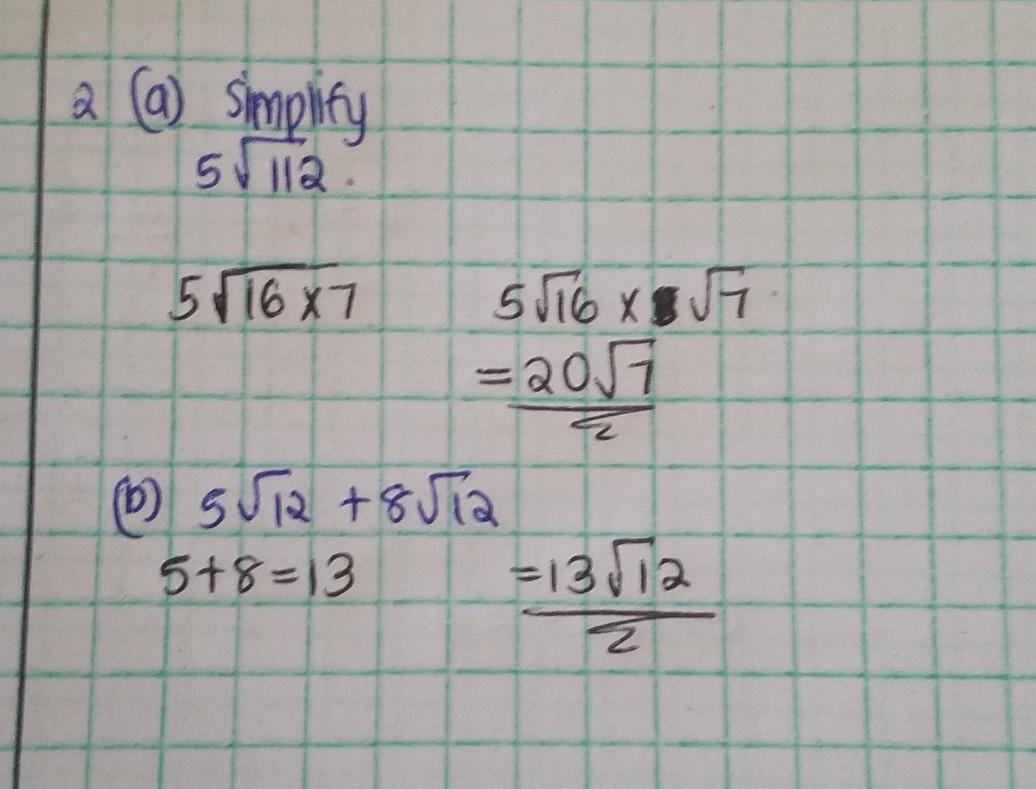 2 (a) Simplify
5√112.
5√16 x 7 5√16 x √7
= 20√7
(b) 5√12 + 8√12
5+8=13 =13√12